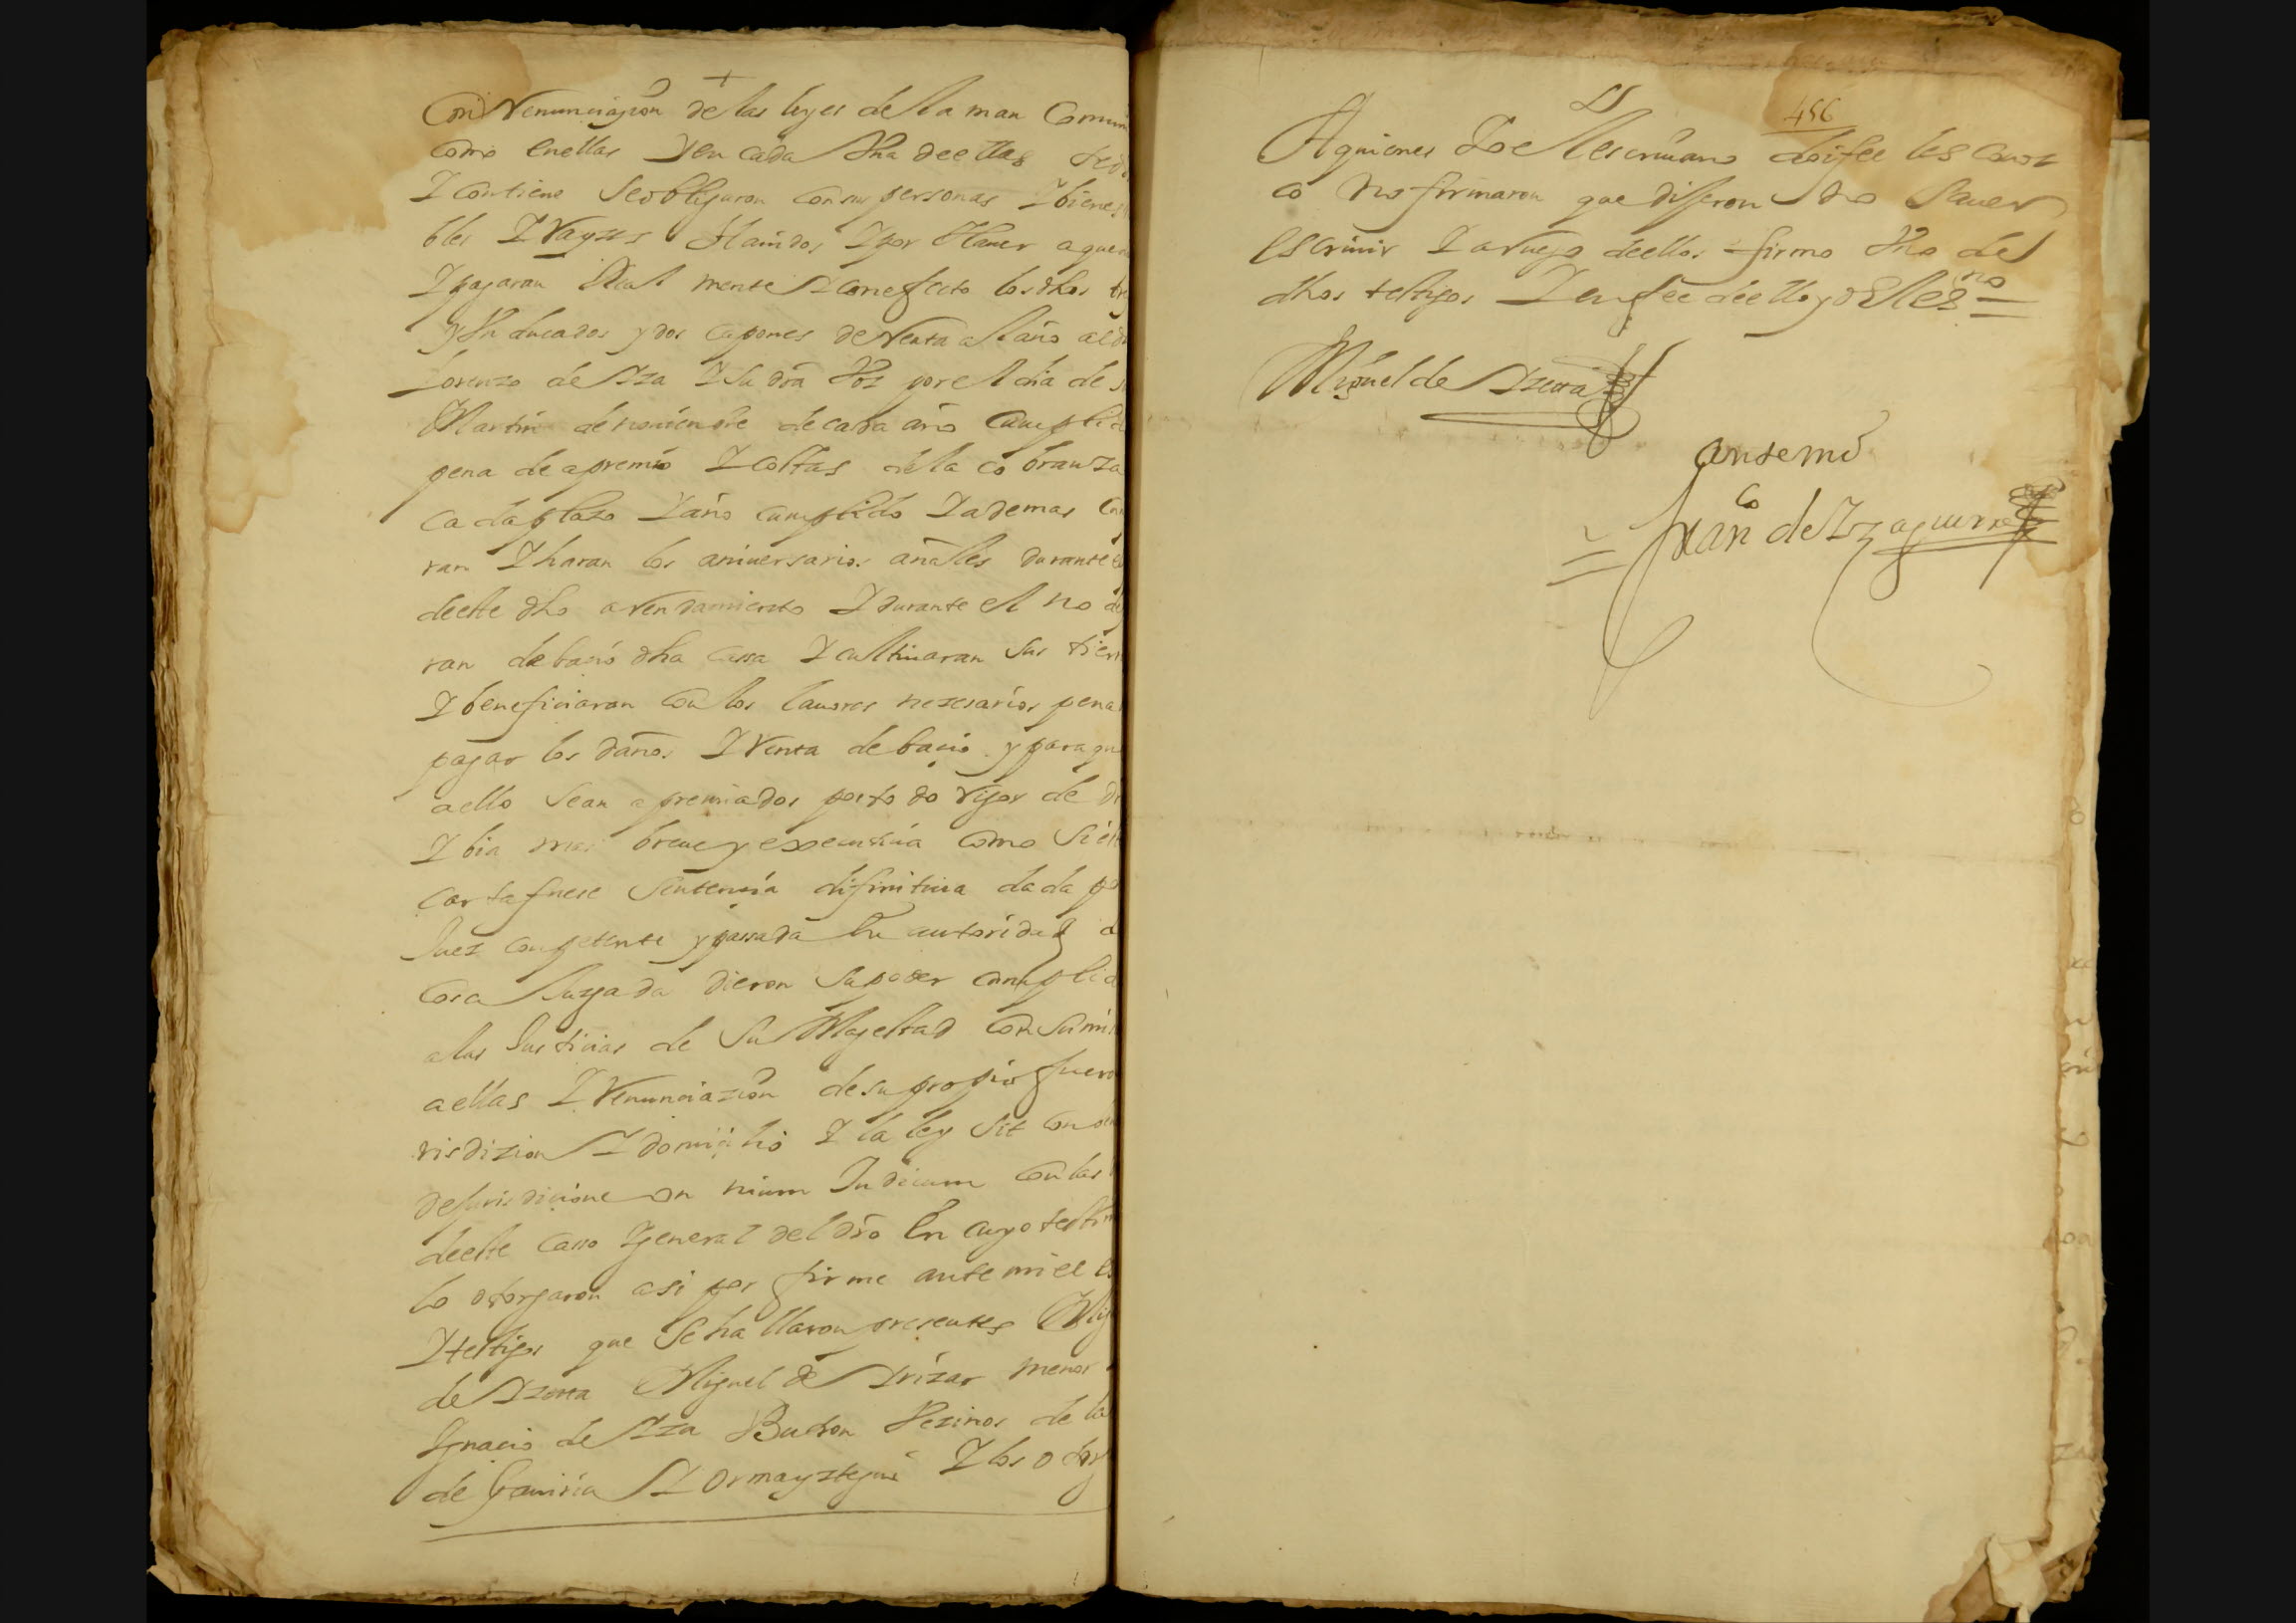 +
Con Renunciaçion de las leyes de la man Comun
como en ellas y en cada Vna de ellas
Y contiene se obligaron con sus personas Y bienes
bles Y Rayzes Hauidos Y por Hauer a que
Y pagaran Real mente Y con efecto los dhos
y Vn ducados y dos capones de Renta al año al
Lorenzo de Yza Y su dra Voz por el dia de
Martin de nouiembre de cada año Cumplid
pena de apremio Y costas de la cobranza
cada plazo Y año cumplido Y ademas
ran Y haran los aniuersarios añales durante
de este dho arrendamiento Y durante el no
ran de bacio dha cassa Y cultiuaran sus tierr
Y beneficiaran con los lauores nezesarios pena
pagar los daños Y Renta de bacio y para que
a ello sean apremiados por to do rigor de
Y bia mas breue y executiua como si
carta fuese sentencia difinitiua dada
Juez competente y passada En autoridad
Cosa Juzgada dieron su poder cumplid
a las Justicias de su Magestad con sumi
a ellas Y Renunciazion de su propio fuero
risdizion Y domicilio Y la ley sit con
de Jurisdicione on nium Judicum con las
de este casso Y general del dro En cuyo testim
lo otorgaron asi por firme ante mi el
Y testigos que se hallaron presentes Mig
de Yzetta Miguel de Yrizar menor
Ygnacio de Yza Butron Vezinos de la
de Gauiria Y Ormayztegui Y los otorg
456
A quienes Yo el escriuano doi fee les conoz
co no firmaron que disseron no Sauer
escriuir Y a ruego de ellos firmo Vno de
dhos testigos Y en fee de ello yo el es no
Miguel de Yzetta
ante mi
Fran co de Yzaguirre